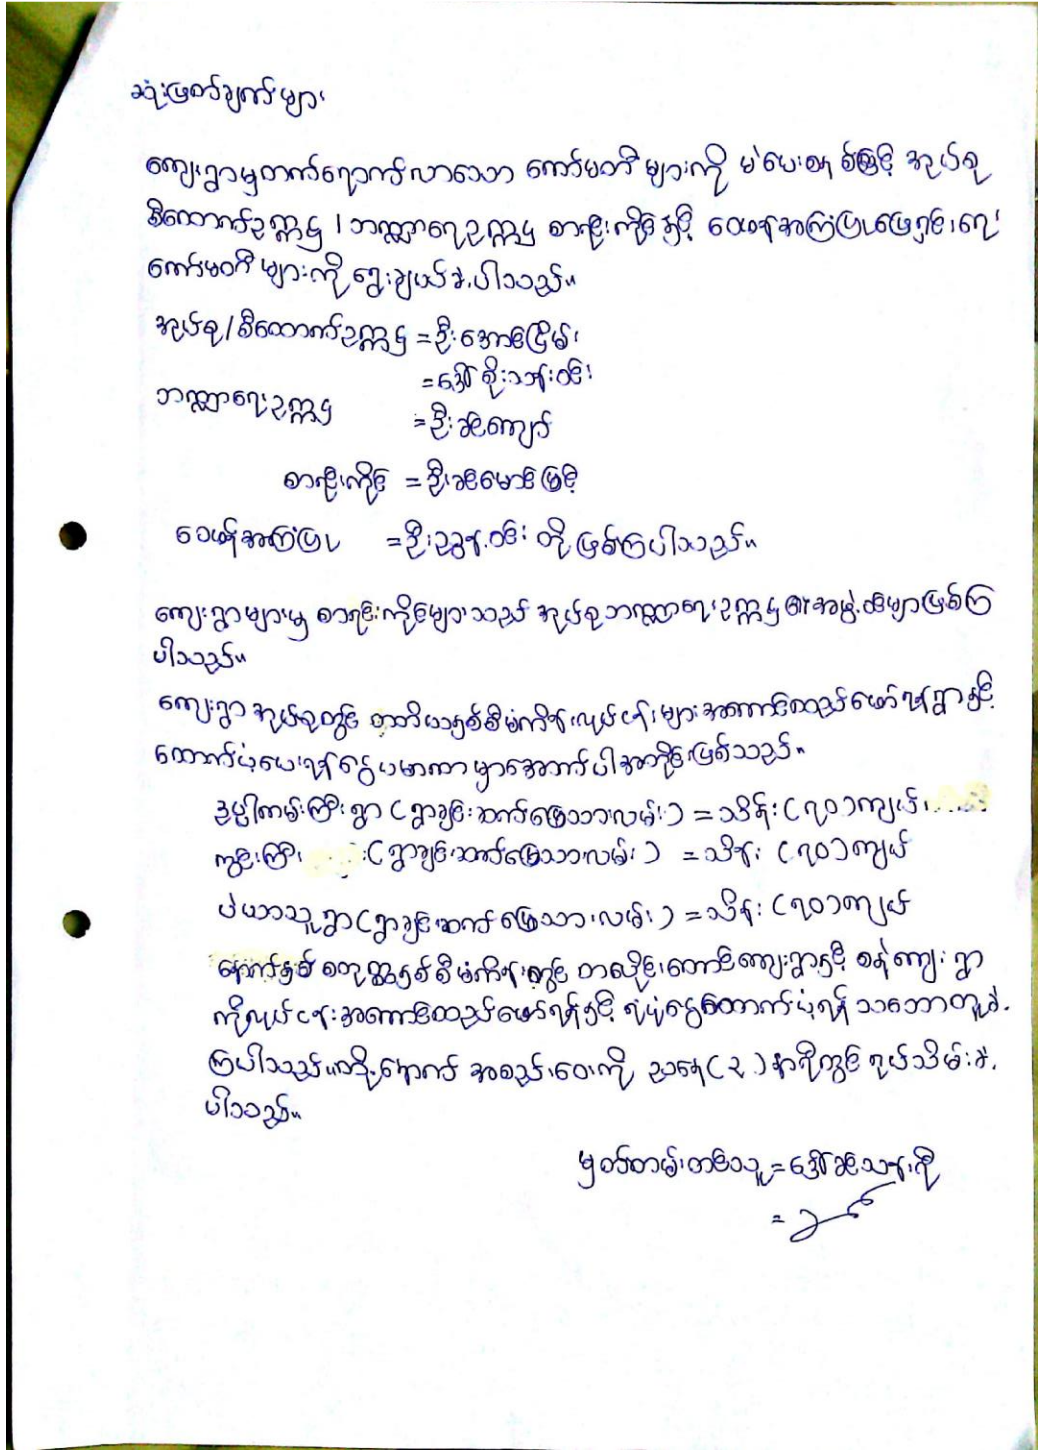 ဆုံးဖြတ်ချက်များ
ကျေးရွာမှတက်ရောက်လာသော ကော်မတီများကို မဲပေးစနစ်ဖြင့် အုပ်စု
စီထောက်ဥက္ကဌ / ဘဏ္ဍာရေးဥက္ကဌ စာရင်းကိုင်နှင့် ဝေဖန်အကြံပြုဖြေရှင်းရေး
ကော်မတီများကို ရွေးချယ်ခဲ့ပါသည်။
အုပ်စု/စီထောက်ဥက္ကဌ = ဦးအောင်ငြိမ်း
= ဒေါ်စိုးသန်းဝင်း
ဘဏ္ဍာရေးဥက္ကဌ = ဦးခင်ကျော်
စာရင်းကိုင် = ဦးခင်မောင်မြင့်
ဝေဖန်အကြံပြု = ဦးညွန့်ဝင်း တို့ဖြစ်ကြပါသည်။
ကျေးရွာများမှ စာရင်းကိုင်များသည် အုပ်စုဘဏ္ဍာရေးဥက္ကဌ၏အဖွဲ့ဝင်များဖြစ်ကြ
ပါသည်။
ကျေးရွာအုပ်စုတွင် တတိယနှစ်စီမံကိန်းလုပ်ငန်းများအကောင်ထည်ဖော်ရန်ရွာနှင့်
ထောက်ပံ့ပေးရန်ငွေပမာဏမှာအောက်ပါအတိုင်းဖြစ်သည်။
ဒူးကြီး ရွာ (ရွာချင်းဆက်မြေသားလမ်း) = သိန်း (၇၀) ကျပ်
ကွင်းကြီး (ရွာချင်းဆက်မြေသားလမ်း) = သိန်း (၇၀) ကျပ်
ပဲယာသူရွာ (ရွာချင်းဆက်မြေသားလမ်း) = သိန်း (၇၀) ကျပ်
နောက်နှစ် စတုတ္ထနှစ်စီမံကိန်းတွင် တလိုင်းတောင်ကျေးရွာနှင့် စနဲကျေးရွာ
ကိုလုပ်ငန်းအကောင်ထည်ဖော်ရန်နှင့် ရံပုံငွေထောက်ပံ့ရန် သဘောတူခဲ့
ကြပါသည်။ထို့နောက် အစည်းဝေးကို ညနေ (၃) နာရီတွင် ရုပ်သိမ်းခဲ့
ပါသည်။
မှတ်တမ်းတင်သူ = ဒေါ်ခင်သန်းစို